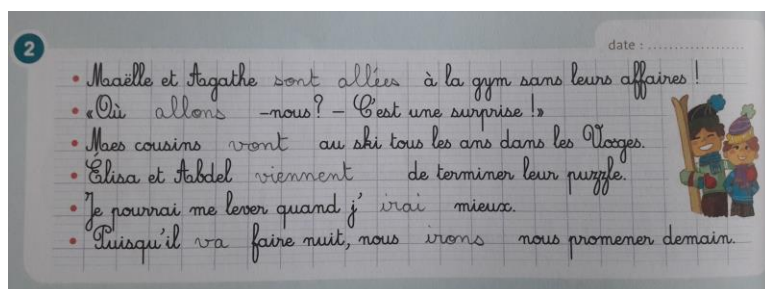 2
date : ....................
• Maaëlle et Agathe sont allées à la gym sans leurs affaires !
• «Où allons -nous? – C'est une surprise !»
• Maes cousins vont au ski tous les ans dans les Vosges.
• Élisa et Abdel viennent de terminer leur puzzle.
• Je pourrai me lever quand j' irai mieux.
• Puisqu'il va faire nuit, nous irons nous promener demain.